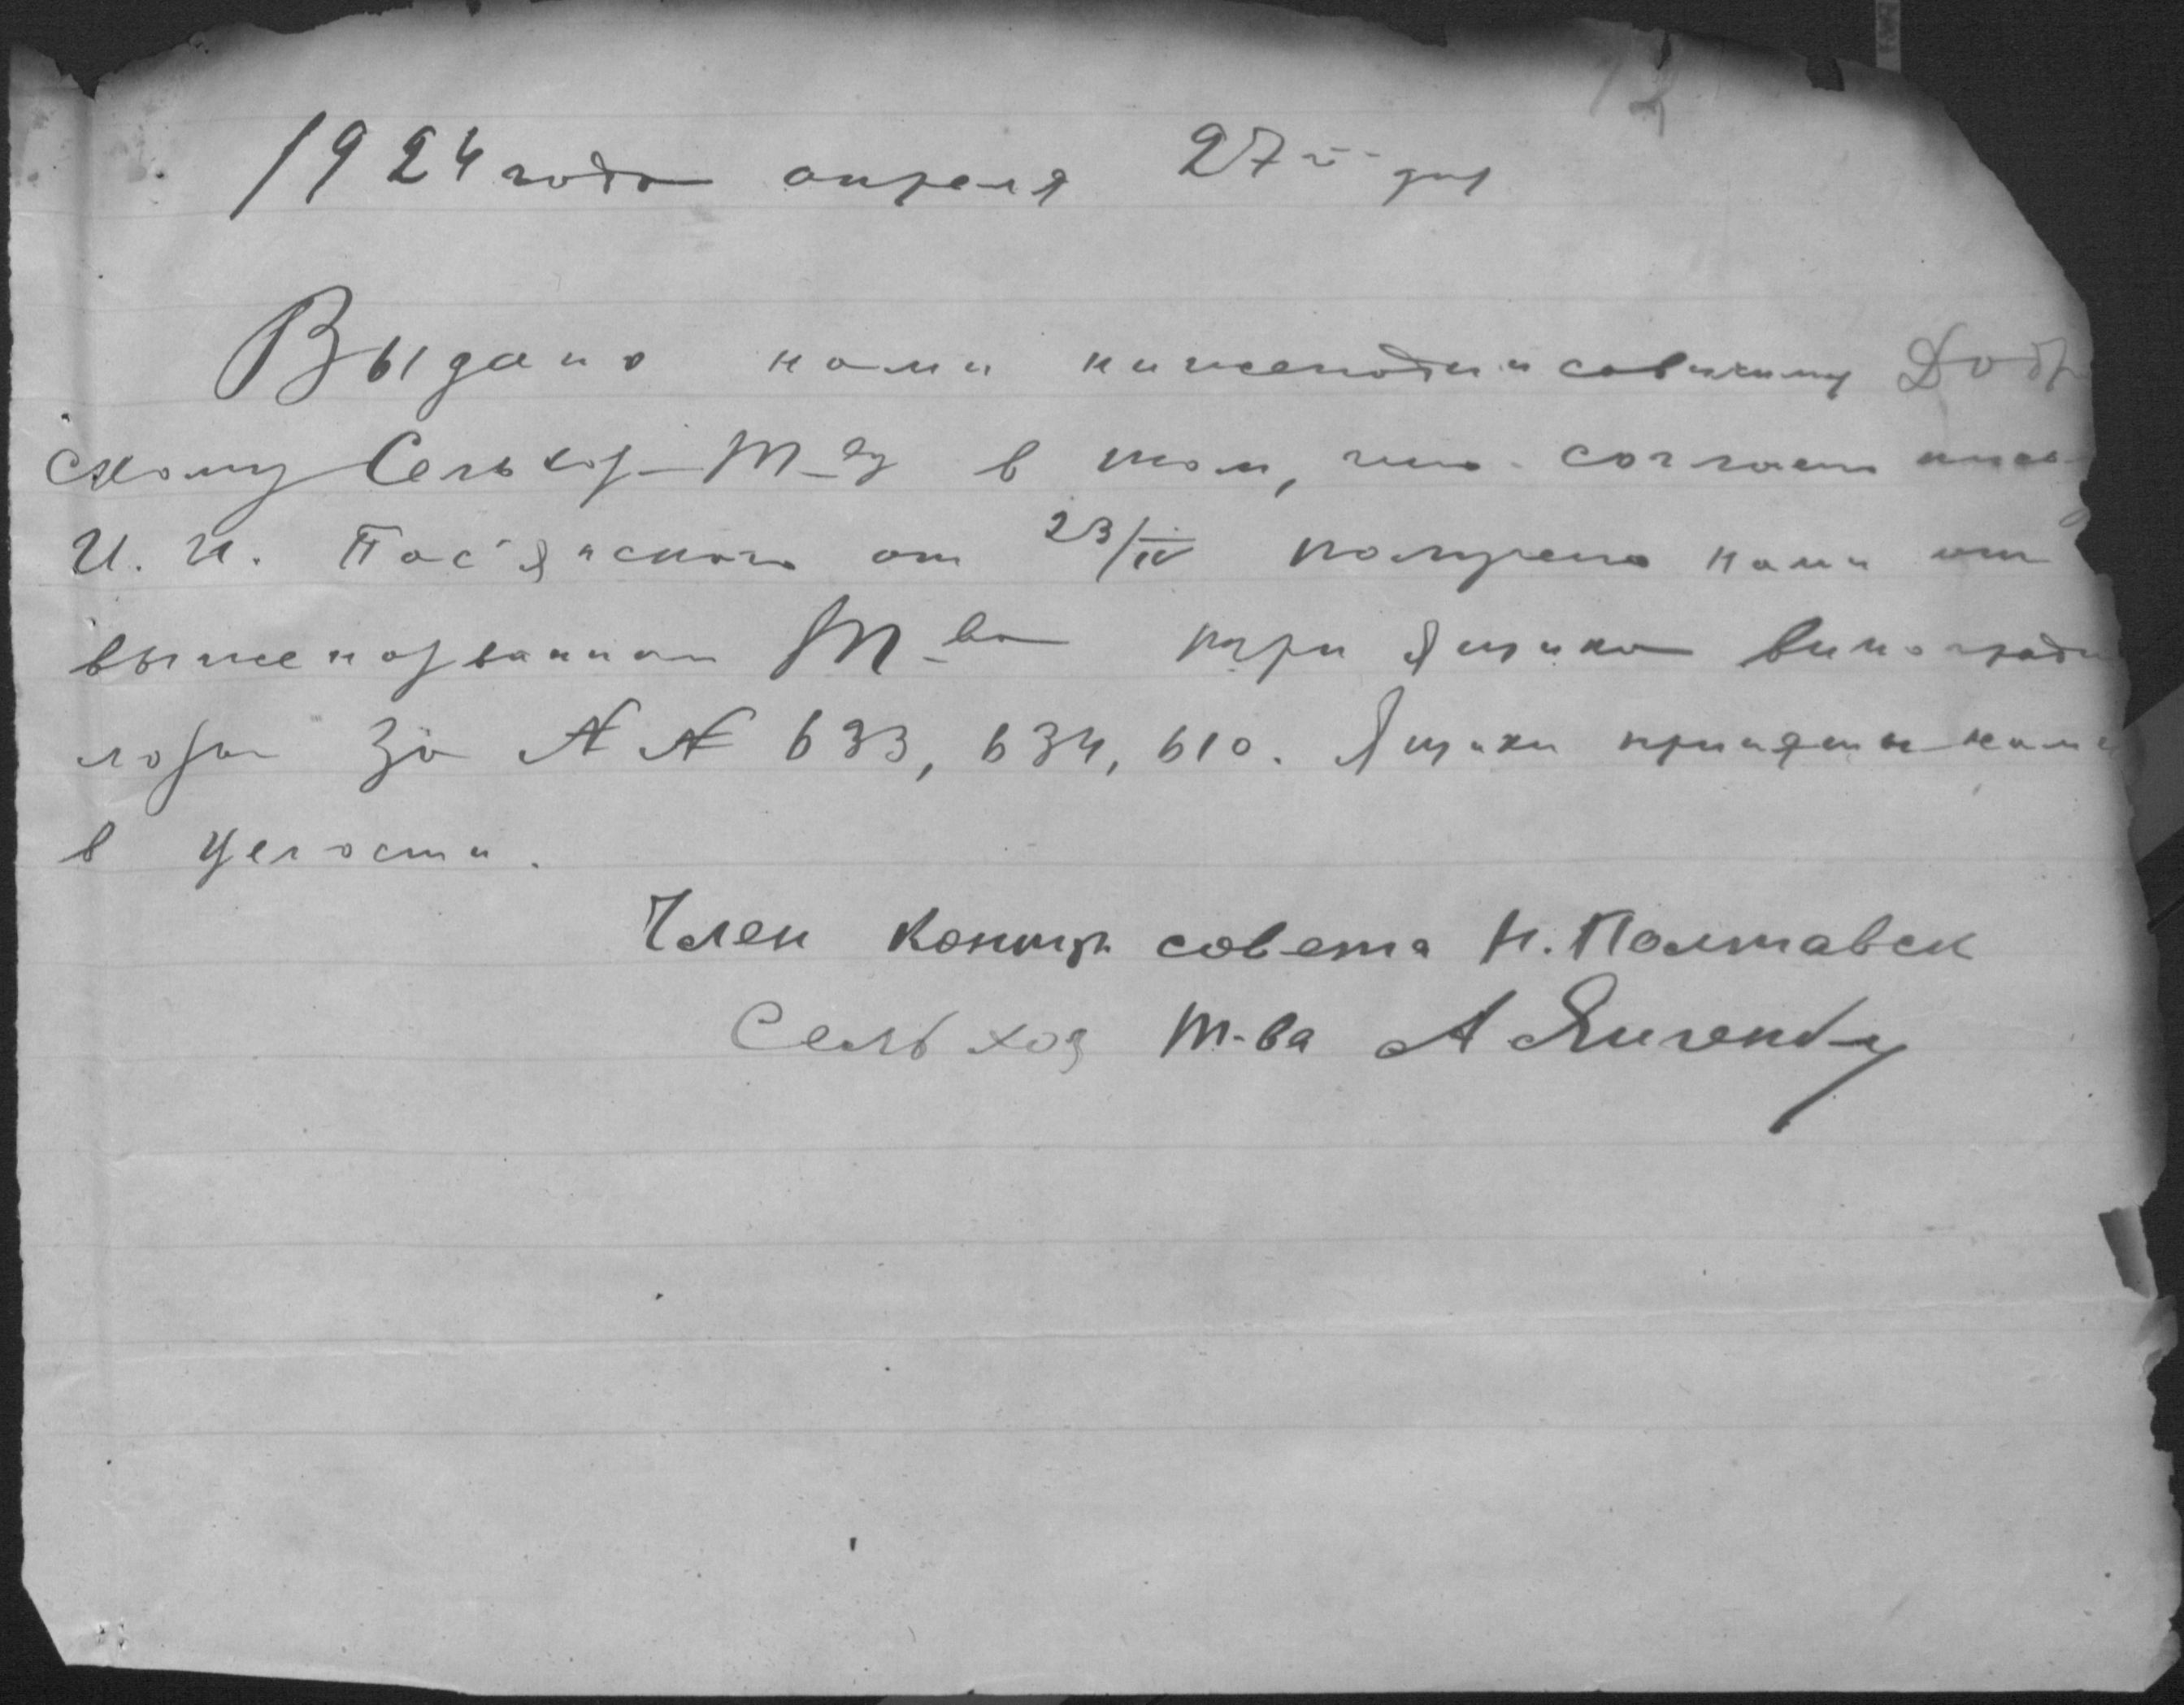 12
1924 года апреля 27го дня
Выдано нами нижеподписавшиму Добр
скому Сельхоз Т-ву в том, что согласно пись
И. И. от 23/IV получено нами от
вышеназванного Т-ва три ящика виноградн
лозы за №№ 633, 634, 610. Ящики приняты нами
в целости.
Член контр совета Н. Полтавск
Сельхоз т-ва А